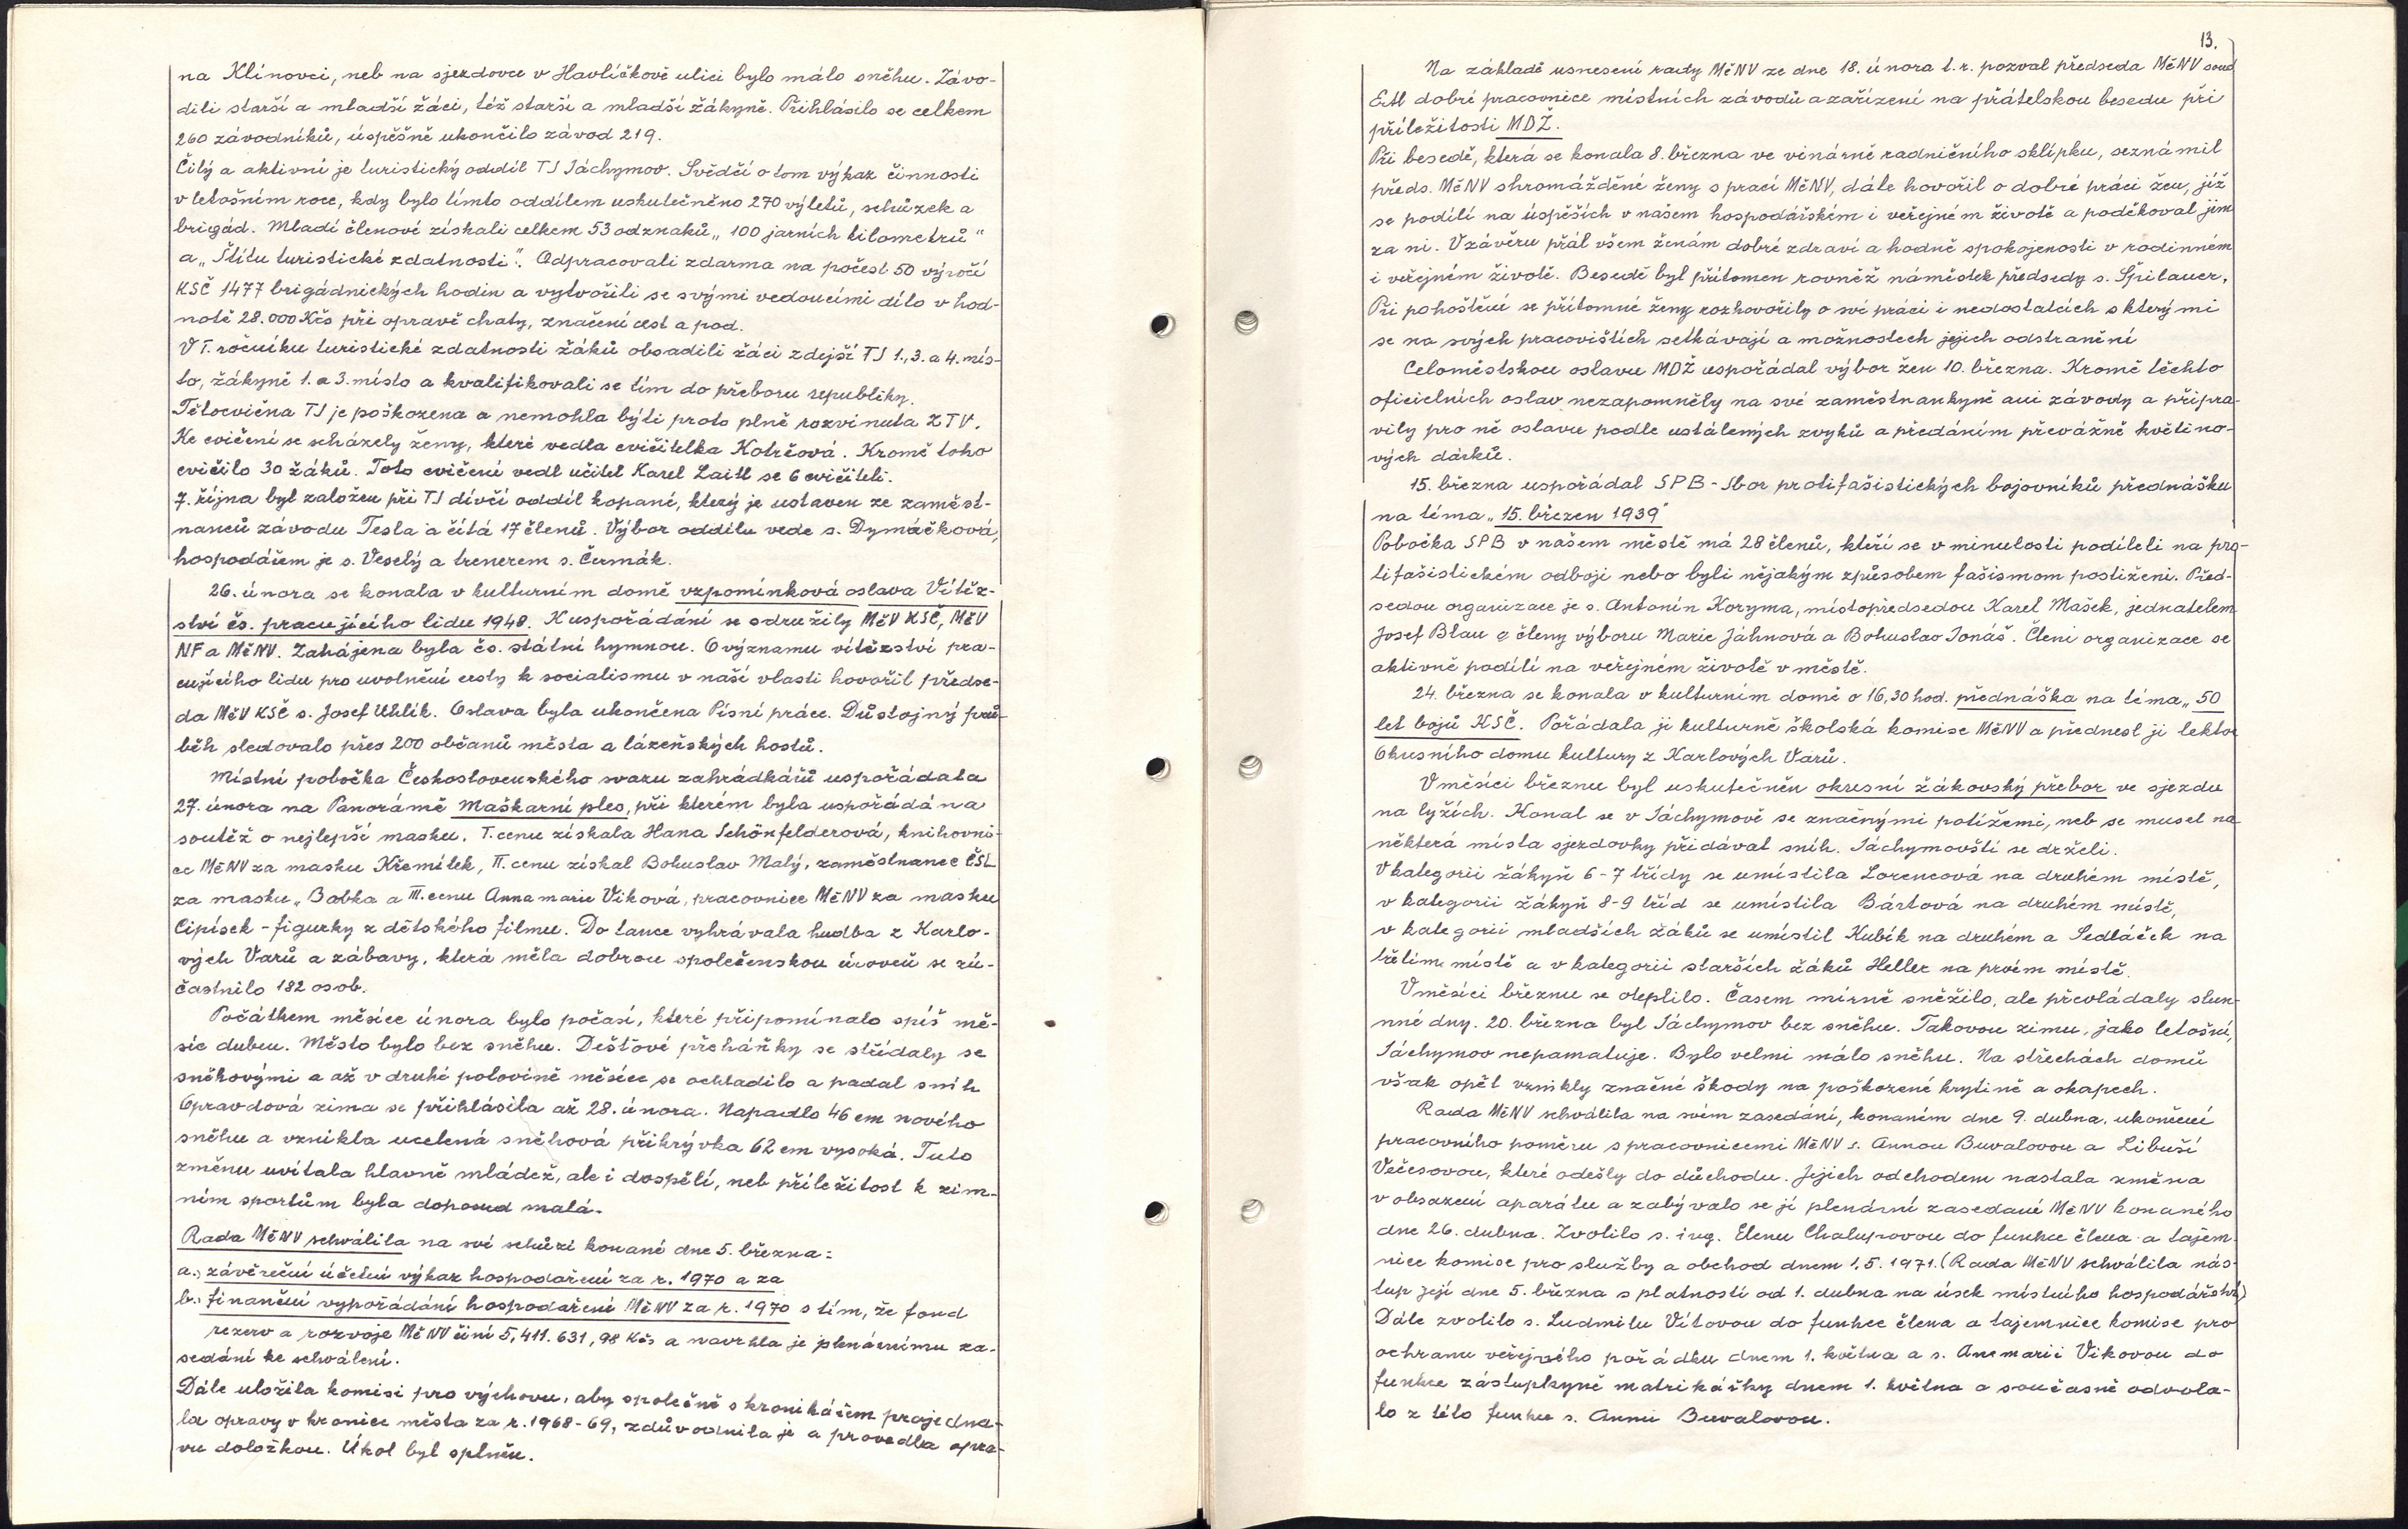 na Klínovci, neb na sjezdovce v Havlíčkově ulici bylo málo sněhu. Závo-
dili starší a mladší žáci, též starší a mladší žákyně. Přihlásilo se celkem
260 závodníků, úspěšně ukončilo závod 219.
Čilý a aktivní je turistický oddíl TJ Jáchymov. Svědčí o tom výkaz činnosti
v letošním roce, kdy bylo tímto oddílem uskutečněno 270 výletů, schůzek a
brigád. Mladí členové získali celkem 53 odznaků „100 jarních kilometrů"
a „Štítu turistické zdatnosti". Odpracovali zdarma na počest 50 výročí
KSČ 1477 brigádnických hodin a vytvořili se svými vedoucími dílo v hod-
notě 28.000 Kčs při opravě chaty, značení cest a pod.
V I. ročníku turistické zdatnosti žáků obsadili žáci zdejší TJ 1., 3. a 4. mís-
to, žákyně 1. a 3. místo a kvalifikovali se tím do přeboru republiky.
Tělocvična TJ je poškozena a nemohla býti proto plně rozvinuta ZTV.
Ke cvičení se scházely ženy, které vedla cvičitelka Kotrčová. Kromě toho
cvičilo 30 žáků. Toto cvičení vedl učitel Karel Laitl se 6 cvičiteli.
7. října byl založen při TJ dívčí oddíl kopané, který je ustaven ze zaměst-
nanců závodu Tesla a čítá 17 členů. Výbor oddílu vede s. Dymáčková,
hospodářem je s. Veselý a trenerem s. Čermák.
26. února se konala v kulturním domě vzpomínková oslava Vítěz-
ství čs. pracujícího lidu 1948. K uspořádání se sdružily MěV KSČ, MěV
NF a MěNV. Zahájena byla čs. státní hymnou. O významu vítězství pra-
cujícího lidu pro uvolnění cesty k socialismu v naší vlasti hovořil předse-
da MěV KSČ s. Josef Uhlík. Oslava byla ukončena Písní práce. Důstojný prů-
běh sledovalo přes 200 občanů města a lázeňských hostů.
Místní pobočka Československého svazu zahrádkářů uspořádala
27. února na Panorámě Maškarní ples, při kterém byla uspořádána
soutěž o nejlepší masku. I. cenu získala Hana Schönfelderová, knihovni-
ce MěNV za masku Křemílek, II. cenu získal Bohuslav Malý, zaměstnanec ČSL
za masku „Babka a III. cenu Annamarie Viková, pracovnice MěNV za masku
Cipísek - figurky z dětského filmu. Do tance vyhrávala hudba z Karlo-
vých Varů a zábavy, která měla dobrou společenskou úroveň se zú-
častnilo 182 osob.
Počátkem měsíce února bylo počasí, které připomínalo spíš mě-
síc duben. Město bylo bez sněhu. Dešťové přeháňky se střídaly se
sněhovými a až v druhé polovině měsíce se ochladilo a padal sníh
Opravdová zima se přihlásila až 28. února. Napadlo 46 cm nového
sněhu a vznikla ucelená sněhová přikrývka 62 cm vysoká. Tuto
změnu uvítala hlavně mládež, ale i dospělí, neb příležitost k zim-
ním sportům byla doposud malá.
Rada MěNV schválila na své schůzi konané dne 5. března:
a., závěreční účetní výkaz hospodaření za r. 1970 a za
b., finanční vypořádání hospodaření MěNV za r. 1970 s tím, že fond
rezerv a rozvoje MěNV činí 5,411.631,98 Kčs a navrhla je plenárnímu za-
sedání ke schválení.
Dále uložila komisi pro výchovu, aby společně s kronikářem projedna-
la opravy v kronice města za r. 1968-69, zdůvodnila je a provedla opra-
vu doložkou. Úkol byl splněn.
13.
Na základě usnesení rady MěNV ze dne 18. února t.r. pozval předseda MěNV soud
Ertl dobré pracovnice místních závodů a zařízení na přátelskou besedu při
příležitosti MDŽ.
Při besedě, která se konala 8. března ve vinárně radničního sklípku, seznámil
předs. MěNV shromážděné ženy s prací MěNV, dále hovořil o dobré práci žen, jíž
se podílí na úspěších v našem hospodářském i veřejném životě a poděkoval jim
za ni. V závěru přál všem ženám dobré zdraví a hodně spokojenosti v rodinném
i veřejném životě. Besedě byl přítomen rovněž náměstek předsedy s. Špilauer.
Při pohoštění se přítomné ženy rozhovořily o své práci i nedostatcích s kterými
se na svých pracovištích setkávají a možnostech jejich odstranění
Celoměstskou oslavu MDŽ uspořádal výbor žen 10. března. Kromě těchto
oficielních oslav nezapomněly na své zaměstnankyně ani závody a připra-
vily pro ně oslavu podle ustálených zvyků a předáním převážně květino-
vých dárků.
15. března uspořádal SPB - Sbor protifašistických bojovníků přednášku
na téma „15. březen 1939"
Pobočka SPB v našem městě má 28 členů, kteří se v minulosti podíleli na pro-
tifašistickém odboji nebo byli nějakým způsobem fašismom postiženi. Před-
sedou organizace je s. Antonín Koryma, místopředsedou Karel Mašek, jednatelem
Josef Blau a členy výboru Marie Jáhnová a Bohuslav Jonáš. Členi organizace se
aktivně podílí na veřejném životě v městě.
24. března se konala v kulturním domě o 16,30 hod. přednáška na téma „50
let bojů KSČ. Pořádala ji kulturně školská komise MěNV a přednesl ji lektor
Okresního domu kultury z Karlových Varů.
V měsíci březnu byl uskutečněn okresní žákovský přebor ve sjezdu
na lyžích. Konal se v Jáchymově se značnými potížemi, neb se musel na
některá místa sjezdovky přidávat sníh. Jáchymovští se drželi.
V kategorii žákyň 6-7 třídy se umístila Lorencová na druhém místě,
v kategorii žákyň 8-9 tříd se umístila Bártová na druhém místě,
v kategorii mladších žáků se umístil Kubík na druhém a Sedláček na
třetím místě a v kategorii starších žáků Heller na prvém místě.
V měsíci březnu se oteplilo. Časem mírně sněžilo, ale převládaly slun-
nné dny. 20. března byl Jáchymov bez sněhu. Takovou zimu, jako letošní,
Jáchymov nepamatuje. Bylo velmi málo sněhu. Na střechách domů
však opět vznikly značné škody na poškozené krytině a okapech.
Rada MěNV schválila na svém zasedání, konaném dne 9. dubna, ukončení
pracovního poměru s pracovnicemi MěNV s. Annou Buvalovou a Libuší
Večesovou, které odešly do důchodu. Jejich odchodem nastala změna
v obsazení aparátu a zabývalo se jí plenární zasedání MěNV konaného
dne 26. dubna. Zvolilo s. ing. Elenu Chalupovou do funkce člena a tajem
nice komise pro služby a obchod dnem 1.5.1971. (Rada MěNV schválila nás-
tup její dne 5. března s platností od 1. dubna na úsek místního hospodářství)
Dále zvolilo s. Ludmilu Vítovou do funkce člena a tajemnice komise pro
ochranu veřejného pořádku dnem 1. května a s. Anemarii Vikovou do
funkce zástupkyně matrikářky dnem 1. května a současně odvola-
lo z této funkce s. Annu Buvalovou.